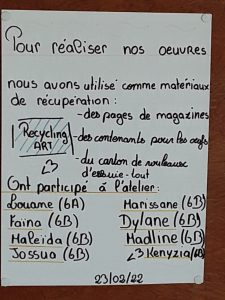 Pour réaliser nos oeuvres
nous avons utilisé comme matériaux
de récupération :
- des pages de magazines
Recycling
ART
- des contenants pour les oeufs
- du carton de rouleaux
d'essuie-tout
<3
Ont participé à l'atelier:
Louame (6A)
Marissane (6B)
Faïna (6B)
Dylane (6B)
Maleïda (6B)
Madline (6B)
Jossua (6B)
<3 Kenyzia (6B)
23/02/22